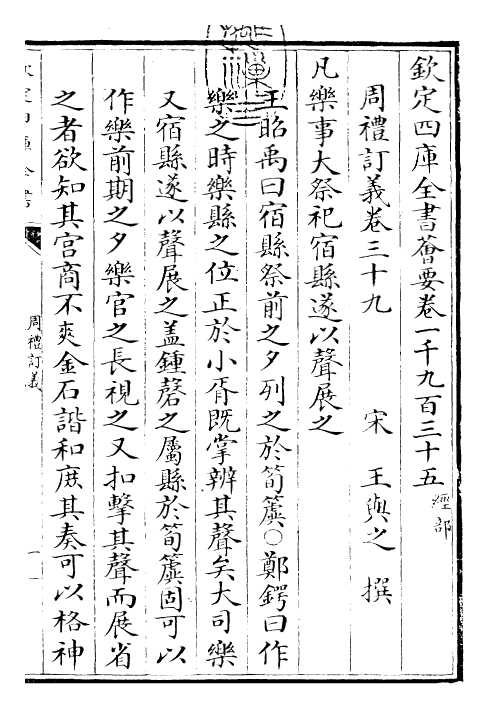 欽定四庫全書薈要卷一千九百三十五 經部
周禮訂義卷三十九 宋 王與之 撰
凡樂事大祭祀宿縣遂以聲展之
王昭禹曰宿縣祭前之夕列之於筍簴○鄭鍔曰作
樂之時樂縣之位正於小胥既掌辨其聲矣大司樂
又宿縣遂以聲展之蓋鍾磬之屬縣於筍簴固可以
作樂前期之夕樂官之長視之又扣擊其聲而展省
之者欲知其宫商不爽金石諧和庶其奏可以格神
欽定四庫全書
周禮訂義
一